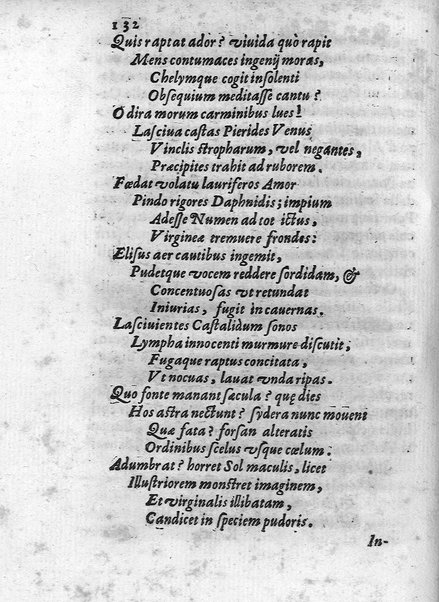 132
Quis raptat ador? viuida quò rapit
Mens contumaces ingenij moras,
Chelymque cogit insolenti
Obsequium meditasse cantu?
O dira morum carminibus lues!
Lasciua castas Pierides Venus
Vinclis stropharum, vel negantes,
Præcipites trahit ad ruborem.
Fœdat volatu lauriferos Amor
Pindo rigores Daphnidis; impium
Adesse Numen ad tot ictus,
Virgineæ tremuere frondes:
Elisus aer cautibus ingemit,
Pudetque vocem reddere sordidam, &
Concentuosas vt retundat
Iniurias, fugit in cauernas.
Lasciuientes Castalidum sonos
Lympha innocenti murmure discutit,
Fugaque raptus concitata,
Vt nocuas, lauat vnda ripas.
Quo fonte manant sæcula? quę dies
Hos astra nectunt? sydera nunc mouent
Quæ fata? forsan alteratis
Ordinibus scelus vsque cœlum.
Adumbrat? horret Sol maculis, licet
Illustriorem monstret imaginem,
Et virginalis illibatam,
Candicet in speciem pudoris.
In-